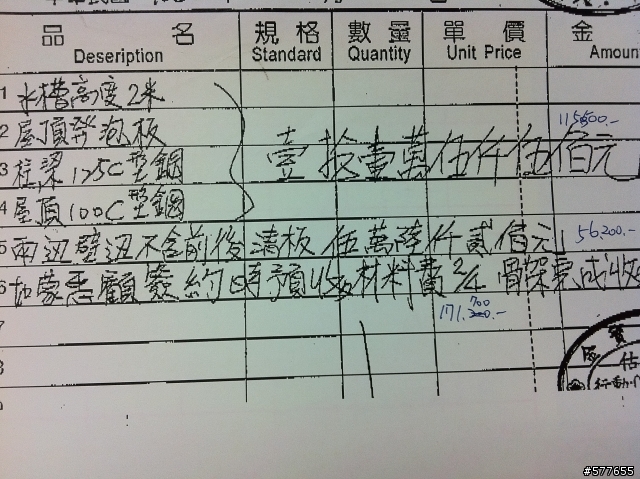 品 名 規 格 數 量 單 價 金
Deseription Standard Quantity Unit Price Amoun
1 水槽高度2米
2 屋頂發泡板 115500.-
3 柱,梁125C型鋼 壹拾壹萬伍仟伍佰元
4 屋頂100C型鋼
5 兩邊壁邊不含前後清板 伍萬陸仟貳佰元 56200.-
6 如蒙惠顧簽約時預收材料費 骨架完成收
700
7 171.
8
9
估
行動
#577655